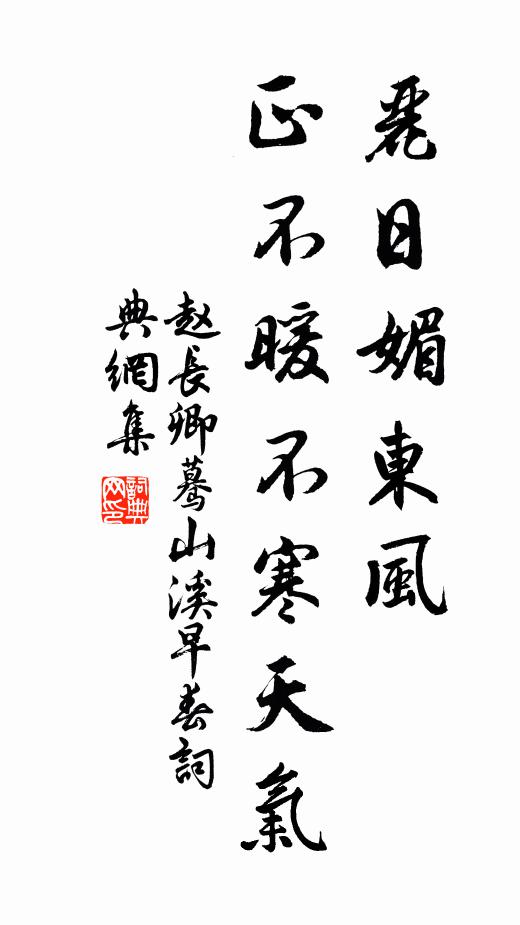 麗日媚東風
正不暖不寒天氣
赵長卿驀山溪早春詞
典網集
詞典网印